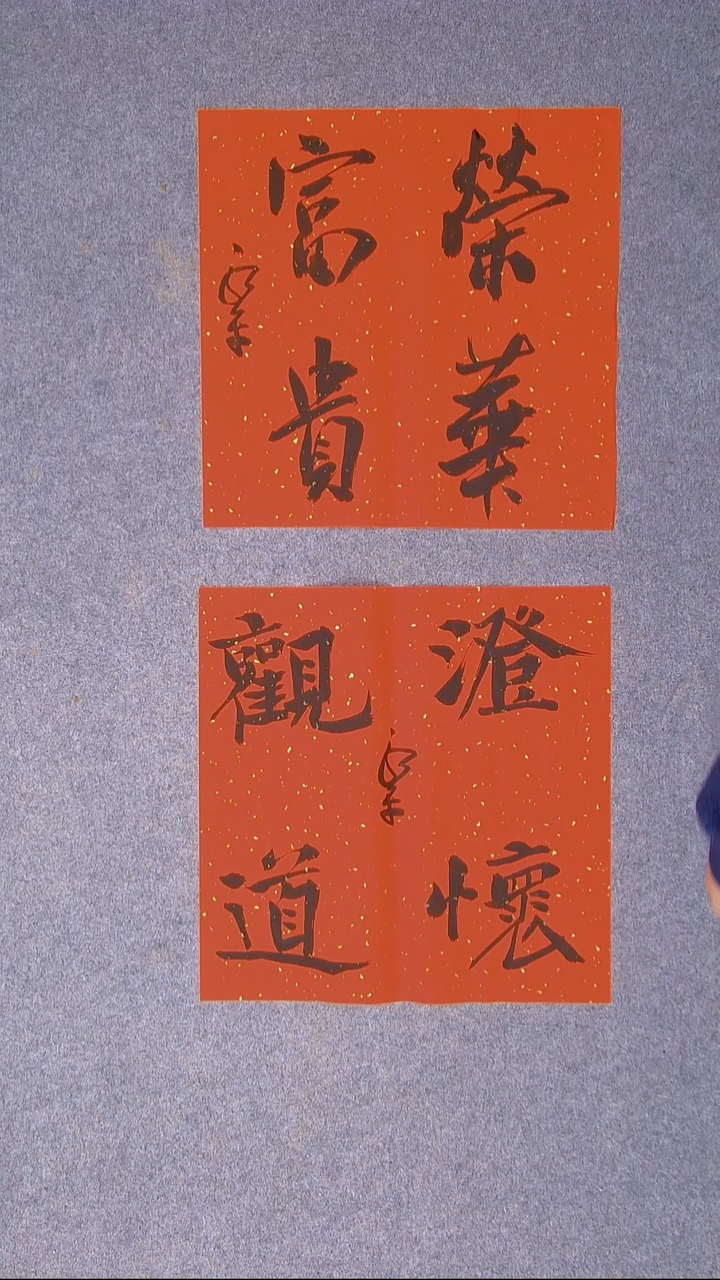 榮華
富貴
澄懷
觀道